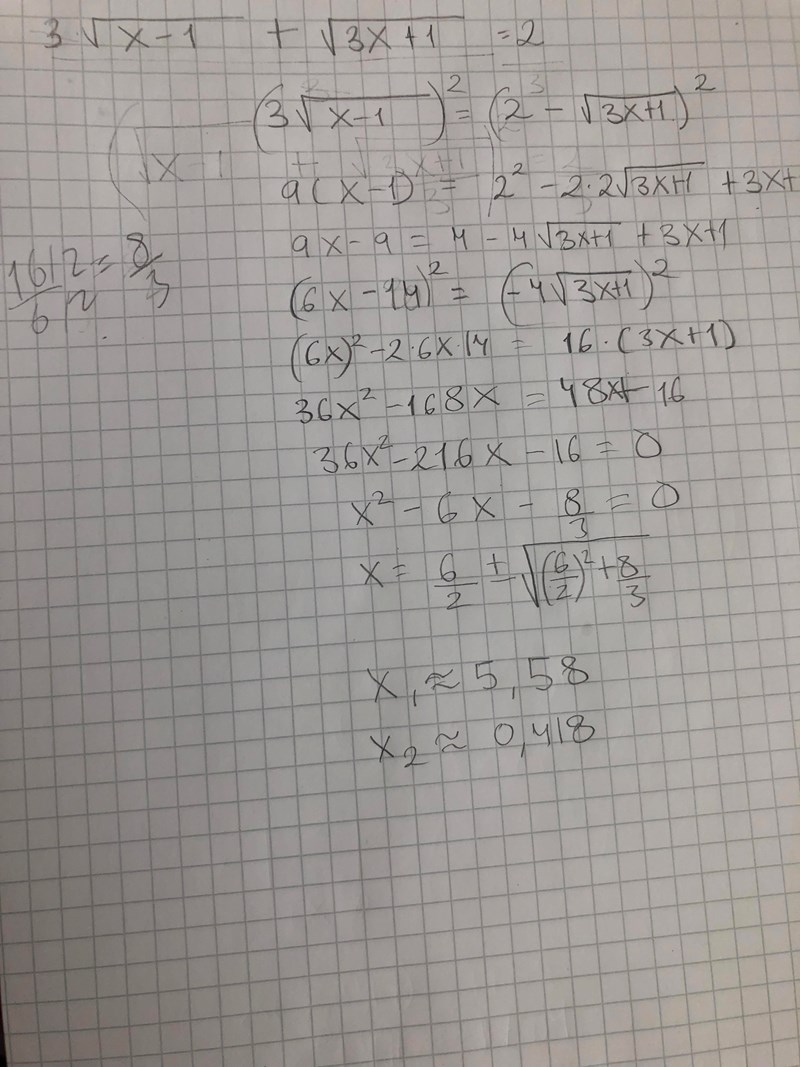 3√(x-1) + √(3x+1) = 2
(3√(x-1))² = (2 - √(3x+1))²
9(x-1) = 2² - 2·2√(3x+1) + 3x+
9x-9 = 4 - 4√(3x+1) + 3x+1
16|2 = 8/3
6|2
(6x - 14)² = (-4√(3x+1))²
(6x)² - 2·6x·14 = 16·(3x+1)
36x² - 168x = 48x + 16
36x² - 216x - 16 = 0
x² - 6x - 8/3 = 0
x = 6/2 ± √((6/2)² + 8/3)
x₁ ≈ 5,58
x₂ ≈ 0,418